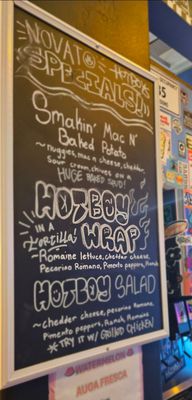 NOVATO HOTBOYS
SPECIALS!
Smakin' Mac N'
Baked Potato
~nuggies, mac n cheese, cheddar,
Sour cream, chives on a
HUGE BAKED SPUD!
HOTBOY
IN A
Tortilla WRAP
~Romaine lettuce, cheddar cheese,
Pecorino Romano, Pimento peppers, Ranch
HOTBOY SALAD
~cheddar cheese, pecorino Romano,
Pimento peppers, Ranch, Romaine
*TRY IT w/ GRILLED CHICKEN
WATERMELON
AUGA FRESCA